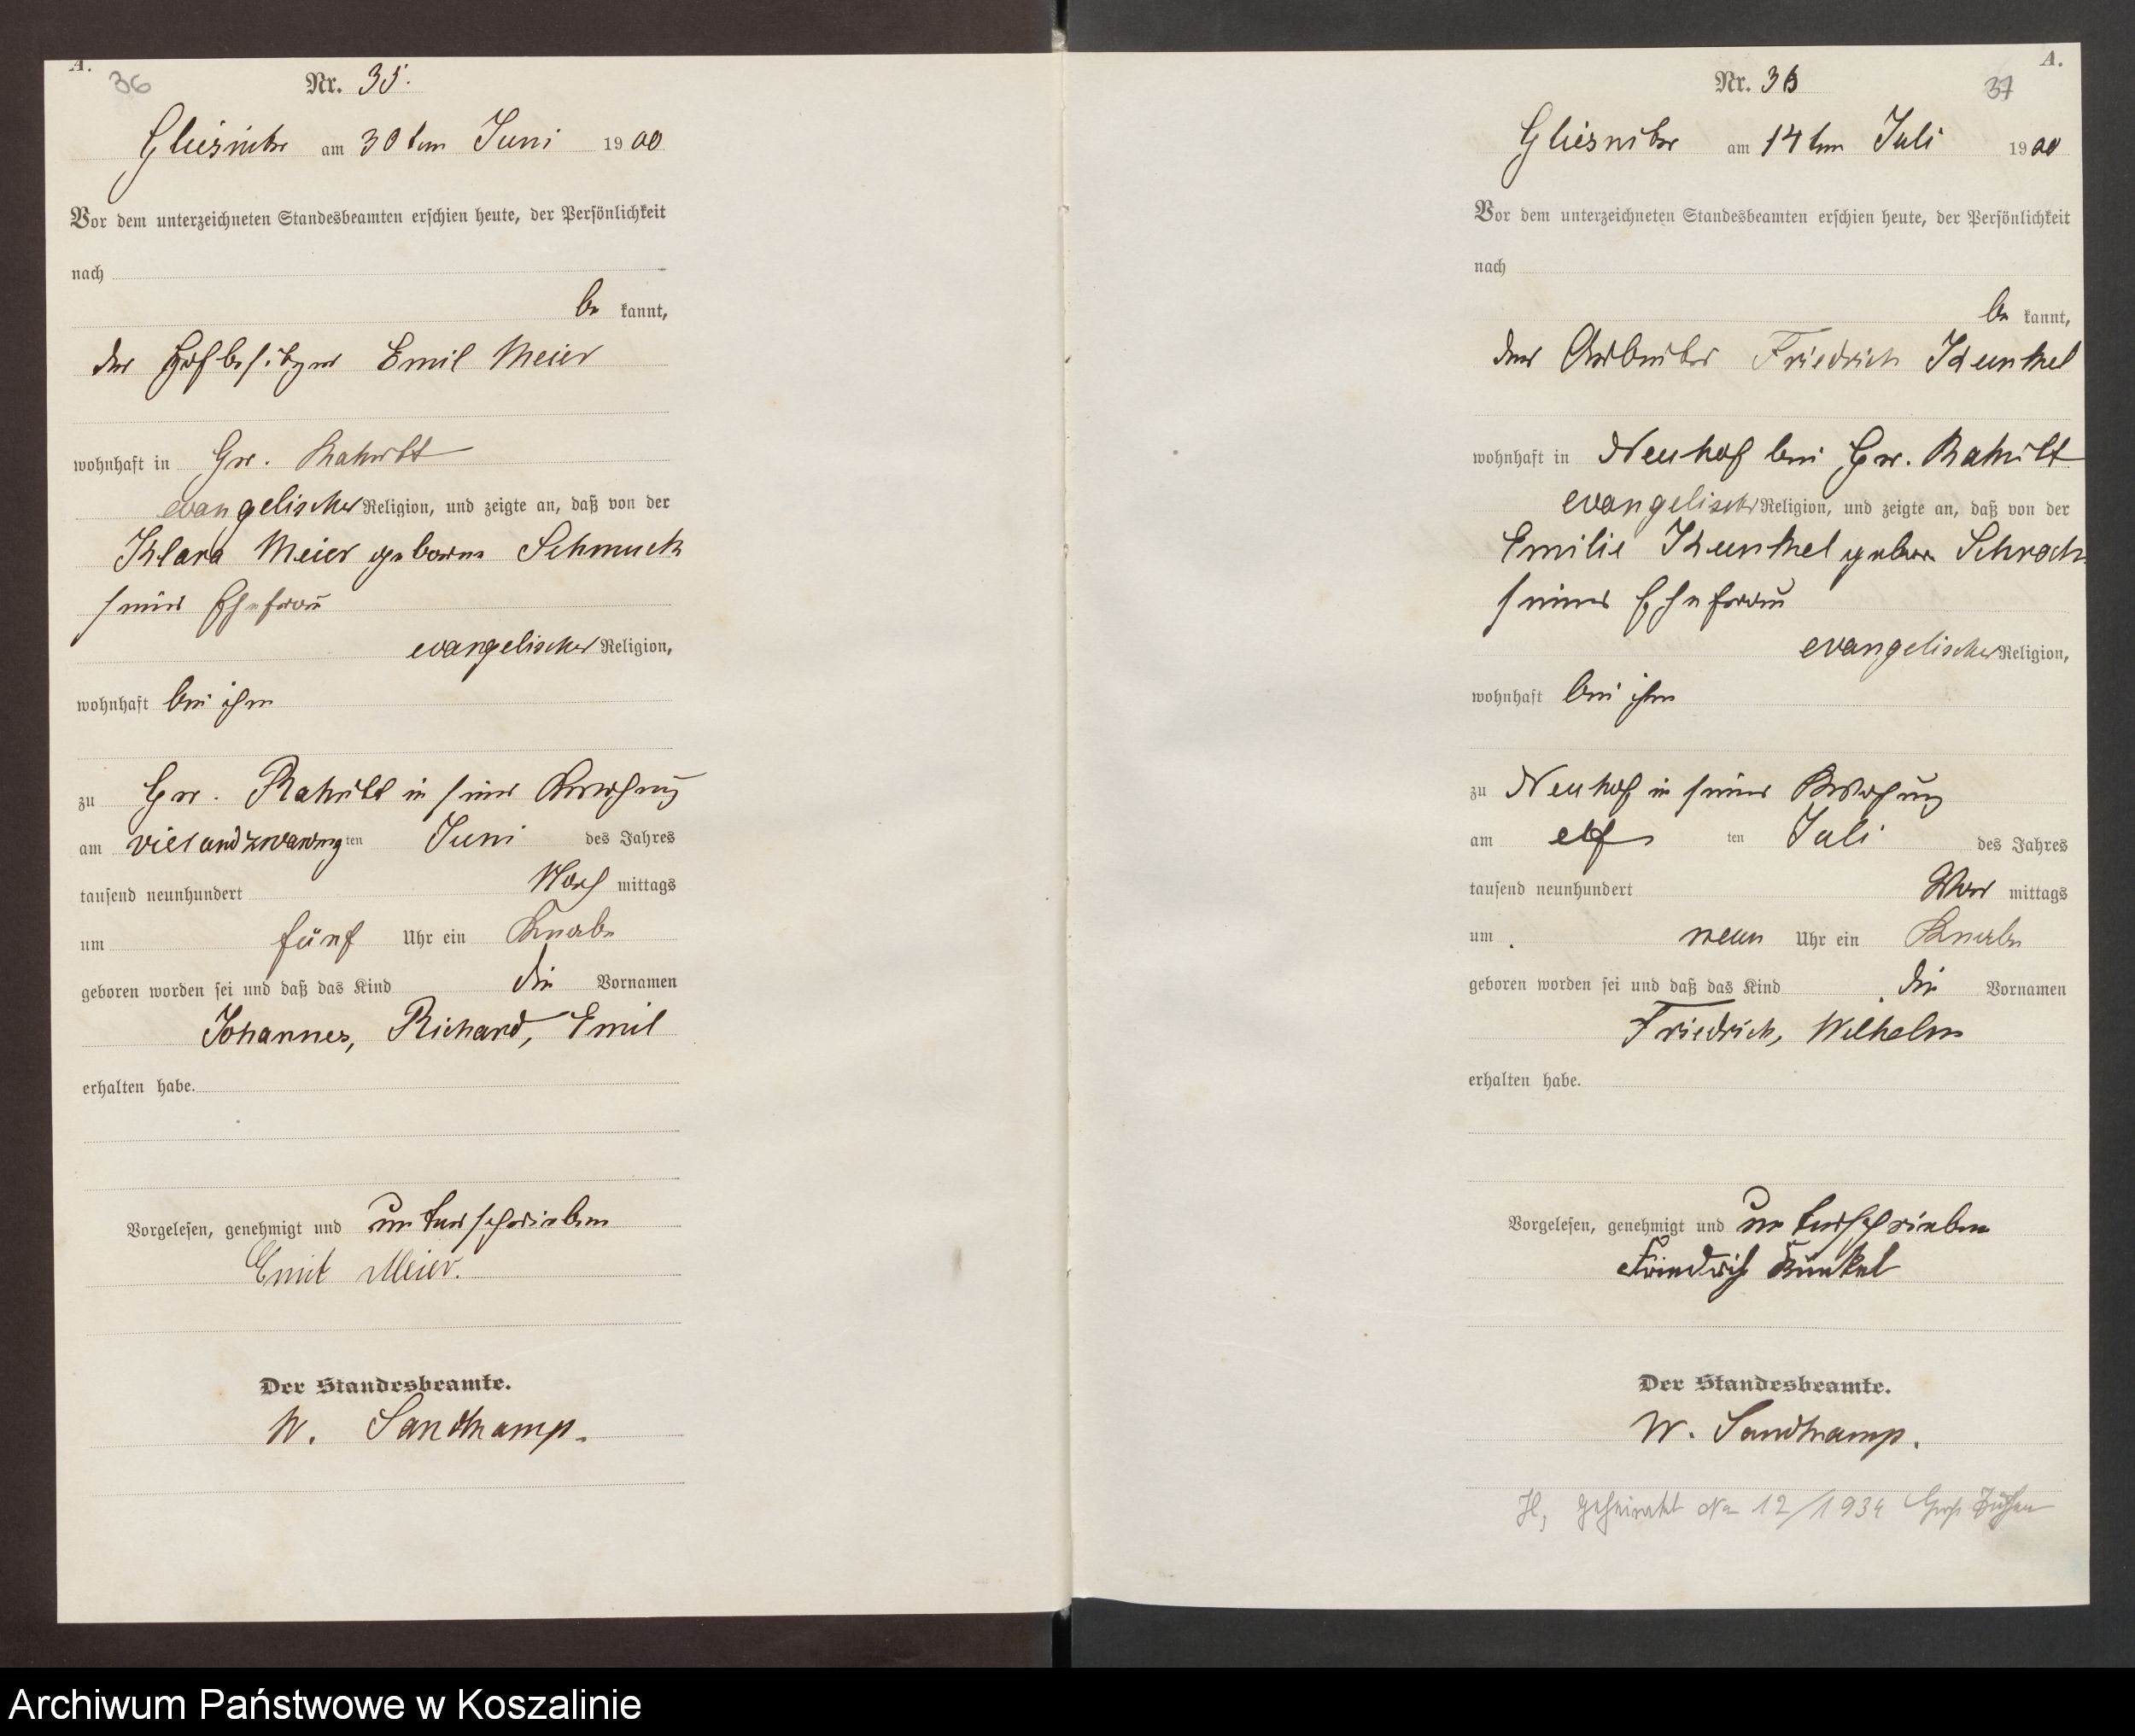 A.
36
Nr. 35.
Gliesnitz am 30ten Juni 1900
Vor dem unterzeichneten Standesbeamten erschien heute, der Persönlichkeit
nach
be kannt,
der Hofbesitzer Emil Meier
wohnhaft in Gr. Rakitt
evangelischer Religion, und zeigte an, daß von der
Klara Meier geborne Schmuck
seiner Ehefrau
evangelischer Religion,
wohnhaft bei ihm
zu Gr. Rakitt in seiner Behausung
am vierundzwanzigten Juni des Jahres
tausend neunhundert Nach mittags
um fünf Uhr ein Knabe
geboren worden sei und daß das Kind die Vornamen
Johannes, Richard, Emil
erhalten habe.
Vorgelesen, genehmigt und unterschrieben
Emil Meier.
Der Standesbeamte.
W. Sandkamp.
A.
37
Nr. 36
Gliesnitz am 14ten Juli 1900
Vor dem unterzeichneten Standesbeamten erschien heute, der Persönlichkeit
nach
be kannt,
der Arbeiter Friedrich Kunkel
wohnhaft in Neuhof bei Gr. Rakitt
evangelischer Religion, und zeigte an, daß von der
Emilie Kunkel geborne
seiner Ehefrau
evangelischer Religion,
wohnhaft bei ihm
zu Neuhof in seiner Behausung
am elften Juli des Jahres
tausend neunhundert Vor mittags
um neun Uhr ein Knabe
geboren worden sei und daß das Kind die Vornamen
Friedrich, Wilhelm
erhalten habe.
Vorgelesen, genehmigt und unterschrieben
Friedrich Kunkel
Der Standesbeamte.
W. Sandkamp.
geheiratet No 12/1934
Archiwum Państwowe w Koszalinie